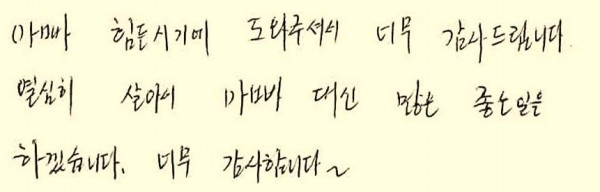 아빠 힘든시기에 도와주셔서 너무 감사드립니다.
열심히 살아서 아빠 대신 많은 좋은일을
하겠습니다. 너무 감사합니다~